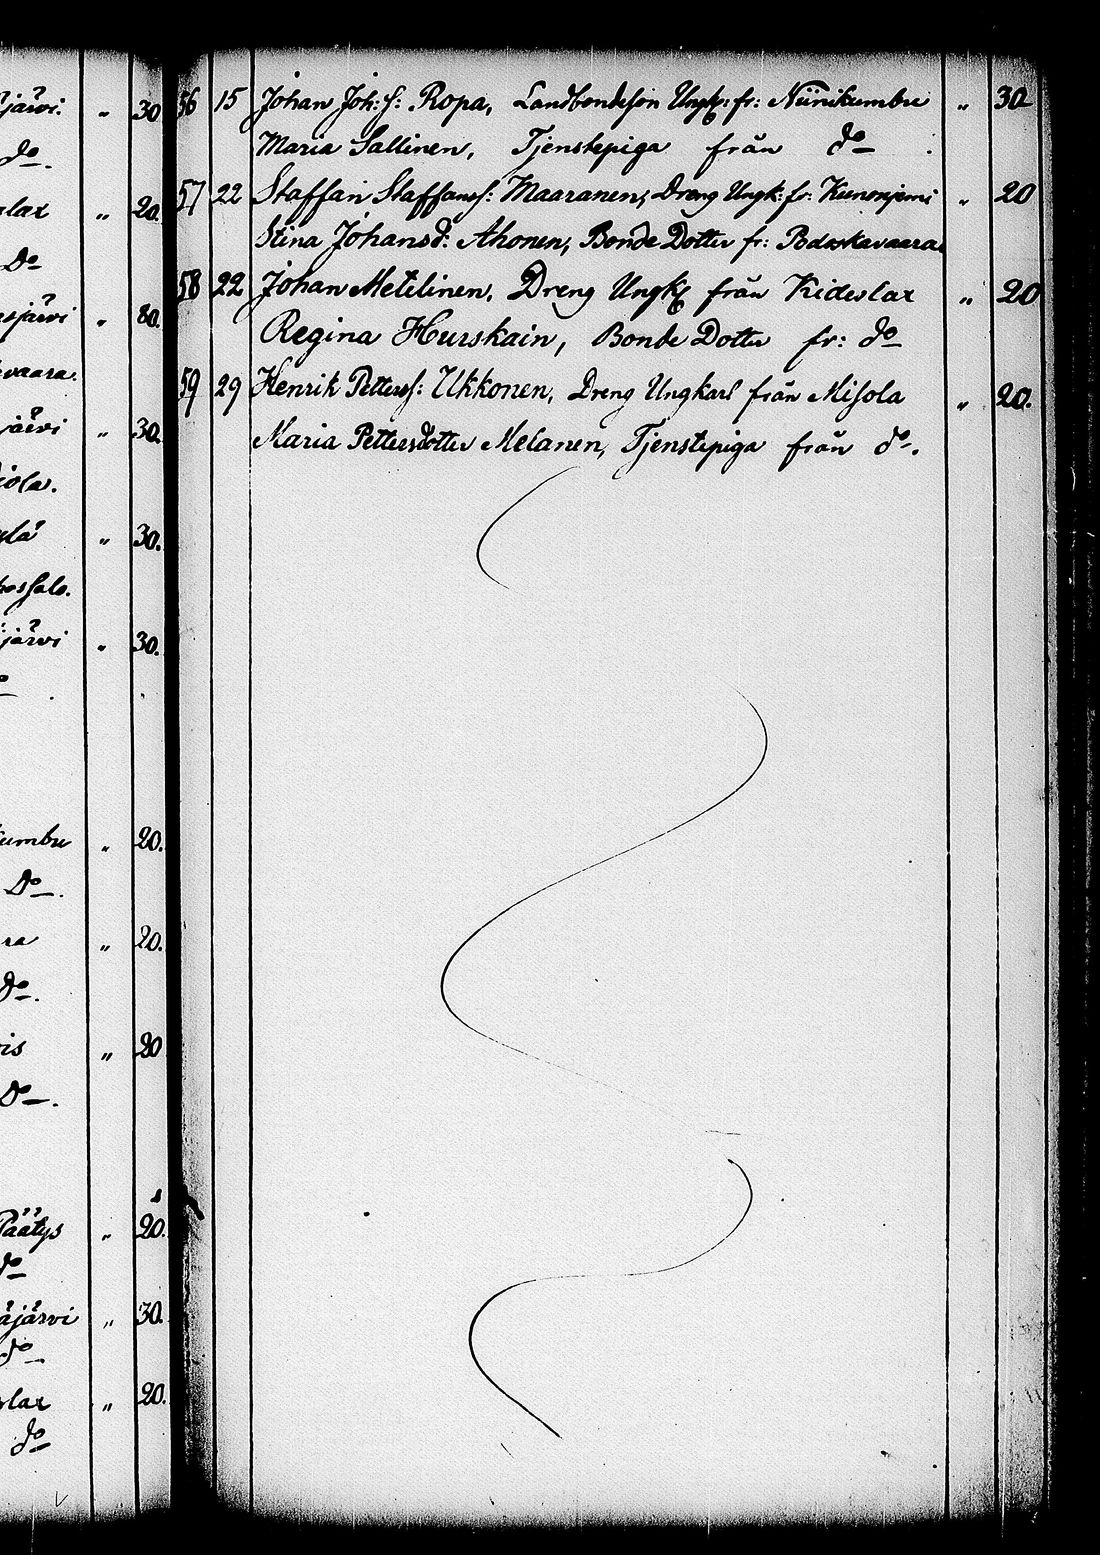 järvi. " 30
do
lax " 20.
Do
järvi " 80.
vaara.
järvi " 30.
iola.
" 30.
järvi " 30.
kumbu " 20.
Do.
ra " 20.
do.
is " 20
Do.
Päätys " 20.
do
äjärvi " 30.
do.
lax " 20.
do
56 15 Johan Joh:s: Ropa, Landbondeson Ungk: fr: Niinikumbu " 30
Maria Sallinen, Tjenstepiga från do
57 22 Staffan Staffanss: Maaranen, Dreng Ungk: fr: " 20
Stina Johansd: Ahonen, Bonde Dotter fr:
58 22 Johan Metilinen, Dreng Ungk från Kideslax " 20
Regina Hurskain, Bonde Dotter fr: do
59 29 Henrik Petterss: Ukkonen, Dreng Ungkarl från Misola " 20.
Maria Pettersdotter Melanen, Tjenstepiga från do.